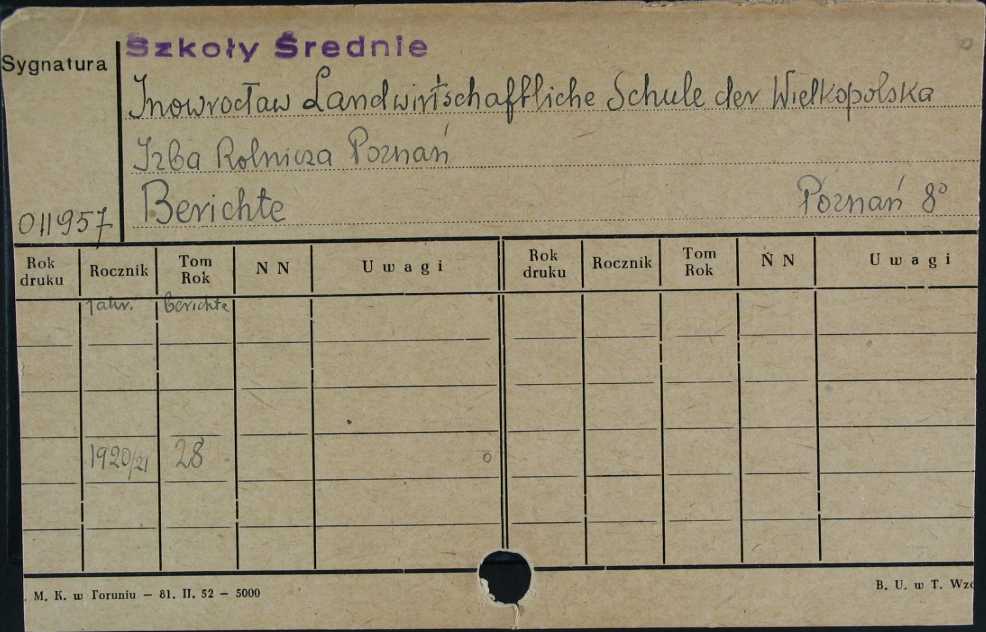 Szkoły Średnie
Sygnatura
Inowrocław Landwirtschaftliche Schule der Wielkopolska
Izba Rolnicza Poznań
011957 Berichte Poznań 8°
Rok druku Rocznik Tom Rok N N Uwagi Rok druku Rocznik Tom Rok N N Uwagi
Jahr. berichte
1920/21 28
. M. K. w Toruniu — 81. II. 52 — 5000 B. U. w T. Wzó